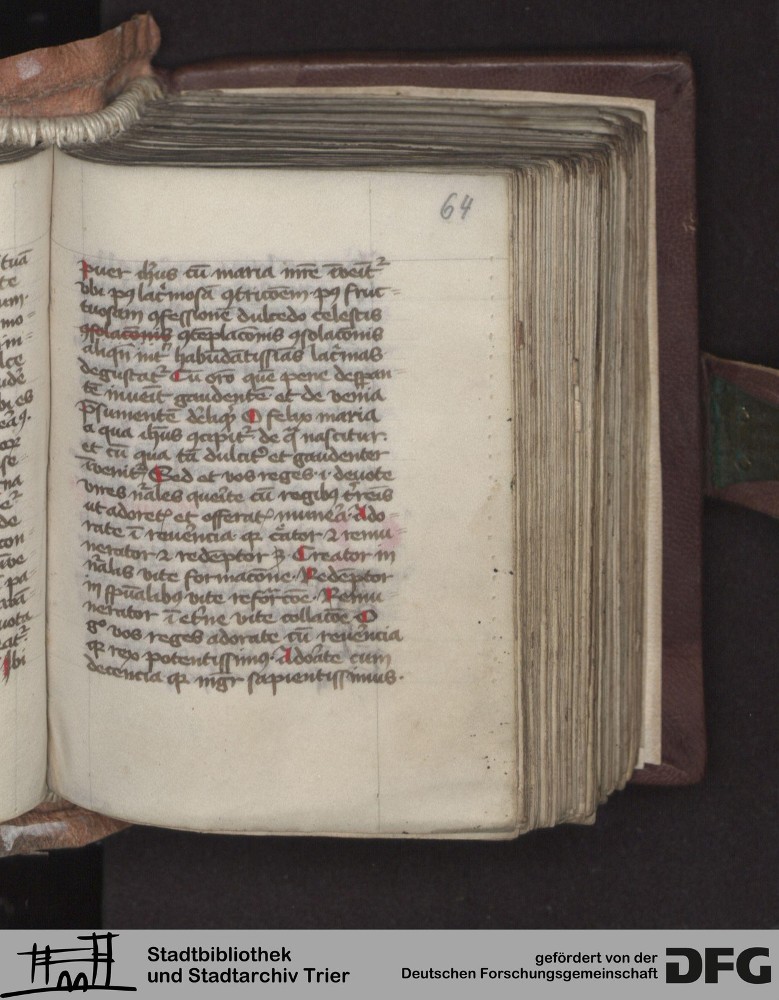 64
puer ihus cū maria mr̄e īveit᷑
vbi pꝰ lac̄mosā ꝯtricōem pꝰ fruc
tuosam ꝯfessione dulcedo celestis
ꝯsolacōnis ꝯtēplacōnis ꝯsolacōnis
aliqn̄ int᷑ habūdātissīas lac̄mas
degustat᷑ Cū oro que pene despan
tē inueit gaudentē et de venia
p̄sumentē O felix maria
a qua ihūs ꝯcipit᷑ de q̄ nascitur
et cū qua tā dulcit᷑ et gaudenter
īvenit᷑ Sed et vos reges .i. deuote
vires n̄ales queīte cū regibꝰ t̄reis
ut adoret᷑ et offerat᷑ munēa Ado
rate ī reuēncia qꝛ c̄ator ⁊ remu
nerator ⁊ redēptor Creator in
n̄alis vite formacōne Redēptor
in sp̄ualibꝰ vite refor̄coē Remu
nerator ī et̄ne vite collacōe O
gͦ vos reges adorate cū reuēncia
qꝛ rex potentissimꝰ Adoāte cum
decēncia qꝛ mgr sapientissimus
Stadtbibliothek
und Stadtarchiv Trier
gefördert von der
Deutschen Forschungsgemeinschaft
DFG